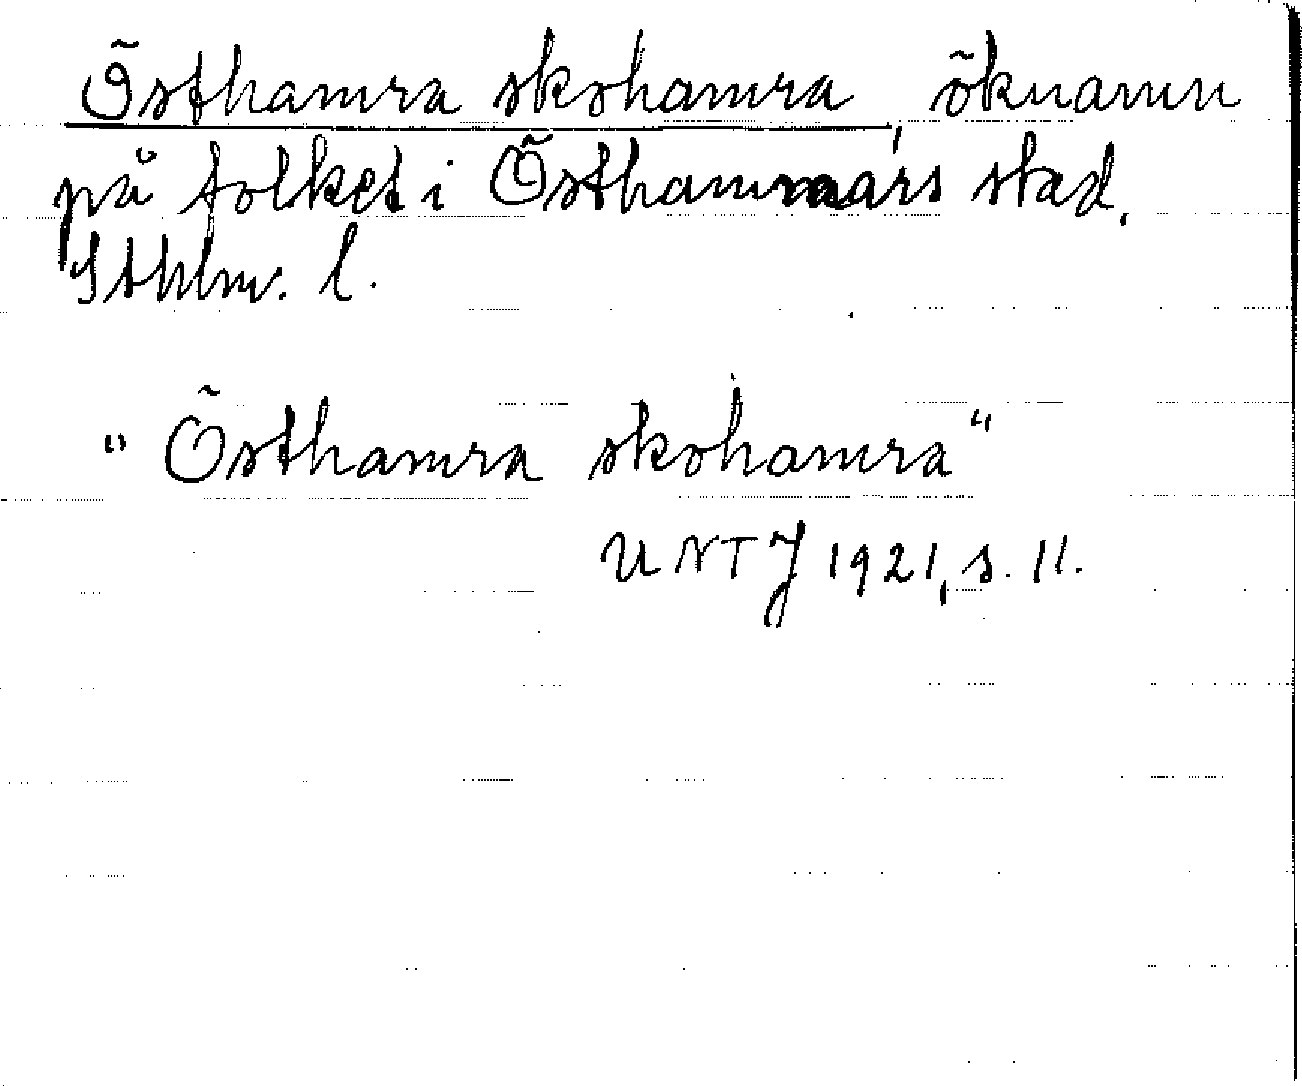 Östhamra skohamra, öknamn
på folket i Östhammars stad,
Sthlm. l.
"Östhamra skohamra"
UNTJ 1921, s. 11.